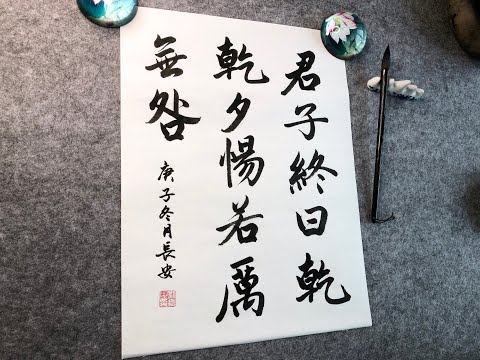 君子終日乾
乾夕惕若厲
無咎
庚子冬月長安